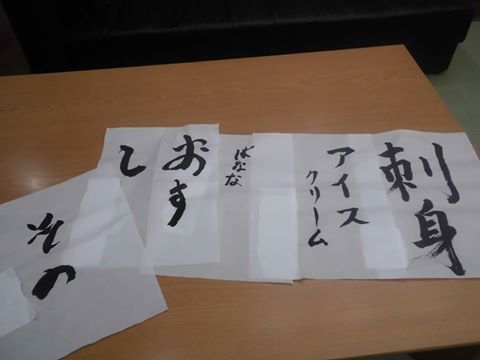 刺身
アイス
クリーム
ばなな
おす
し
その